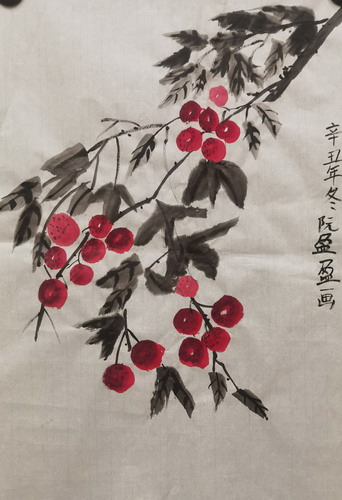 辛丑年冬阮盈盈画